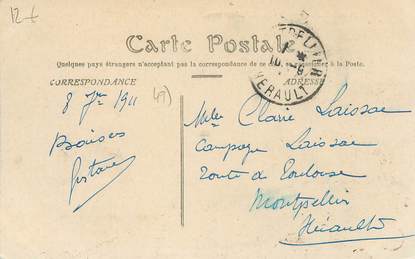 12 €
Carte Postale
Quelques pays étrangers n'acceptant pas la correspondance de ce côté
à la Poste.
CORRESPONDANCE
ADRESSE
HERAULT
8 1911
Baisers
Gustave
Mlle Claire Laissac
Campagne Laissac
Route de Toulouse
Montpellier
Hérault